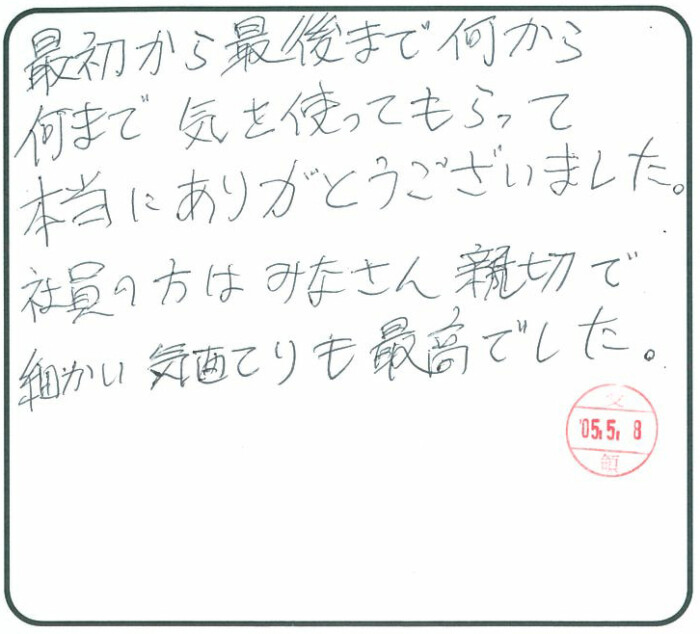 最初から最後まで何から
何まで 気を使ってもらって
本当にありがとうございました。
社員の方は みなさん 親切で
細かい 気配りも最高でした。
受
'05.5.8
領